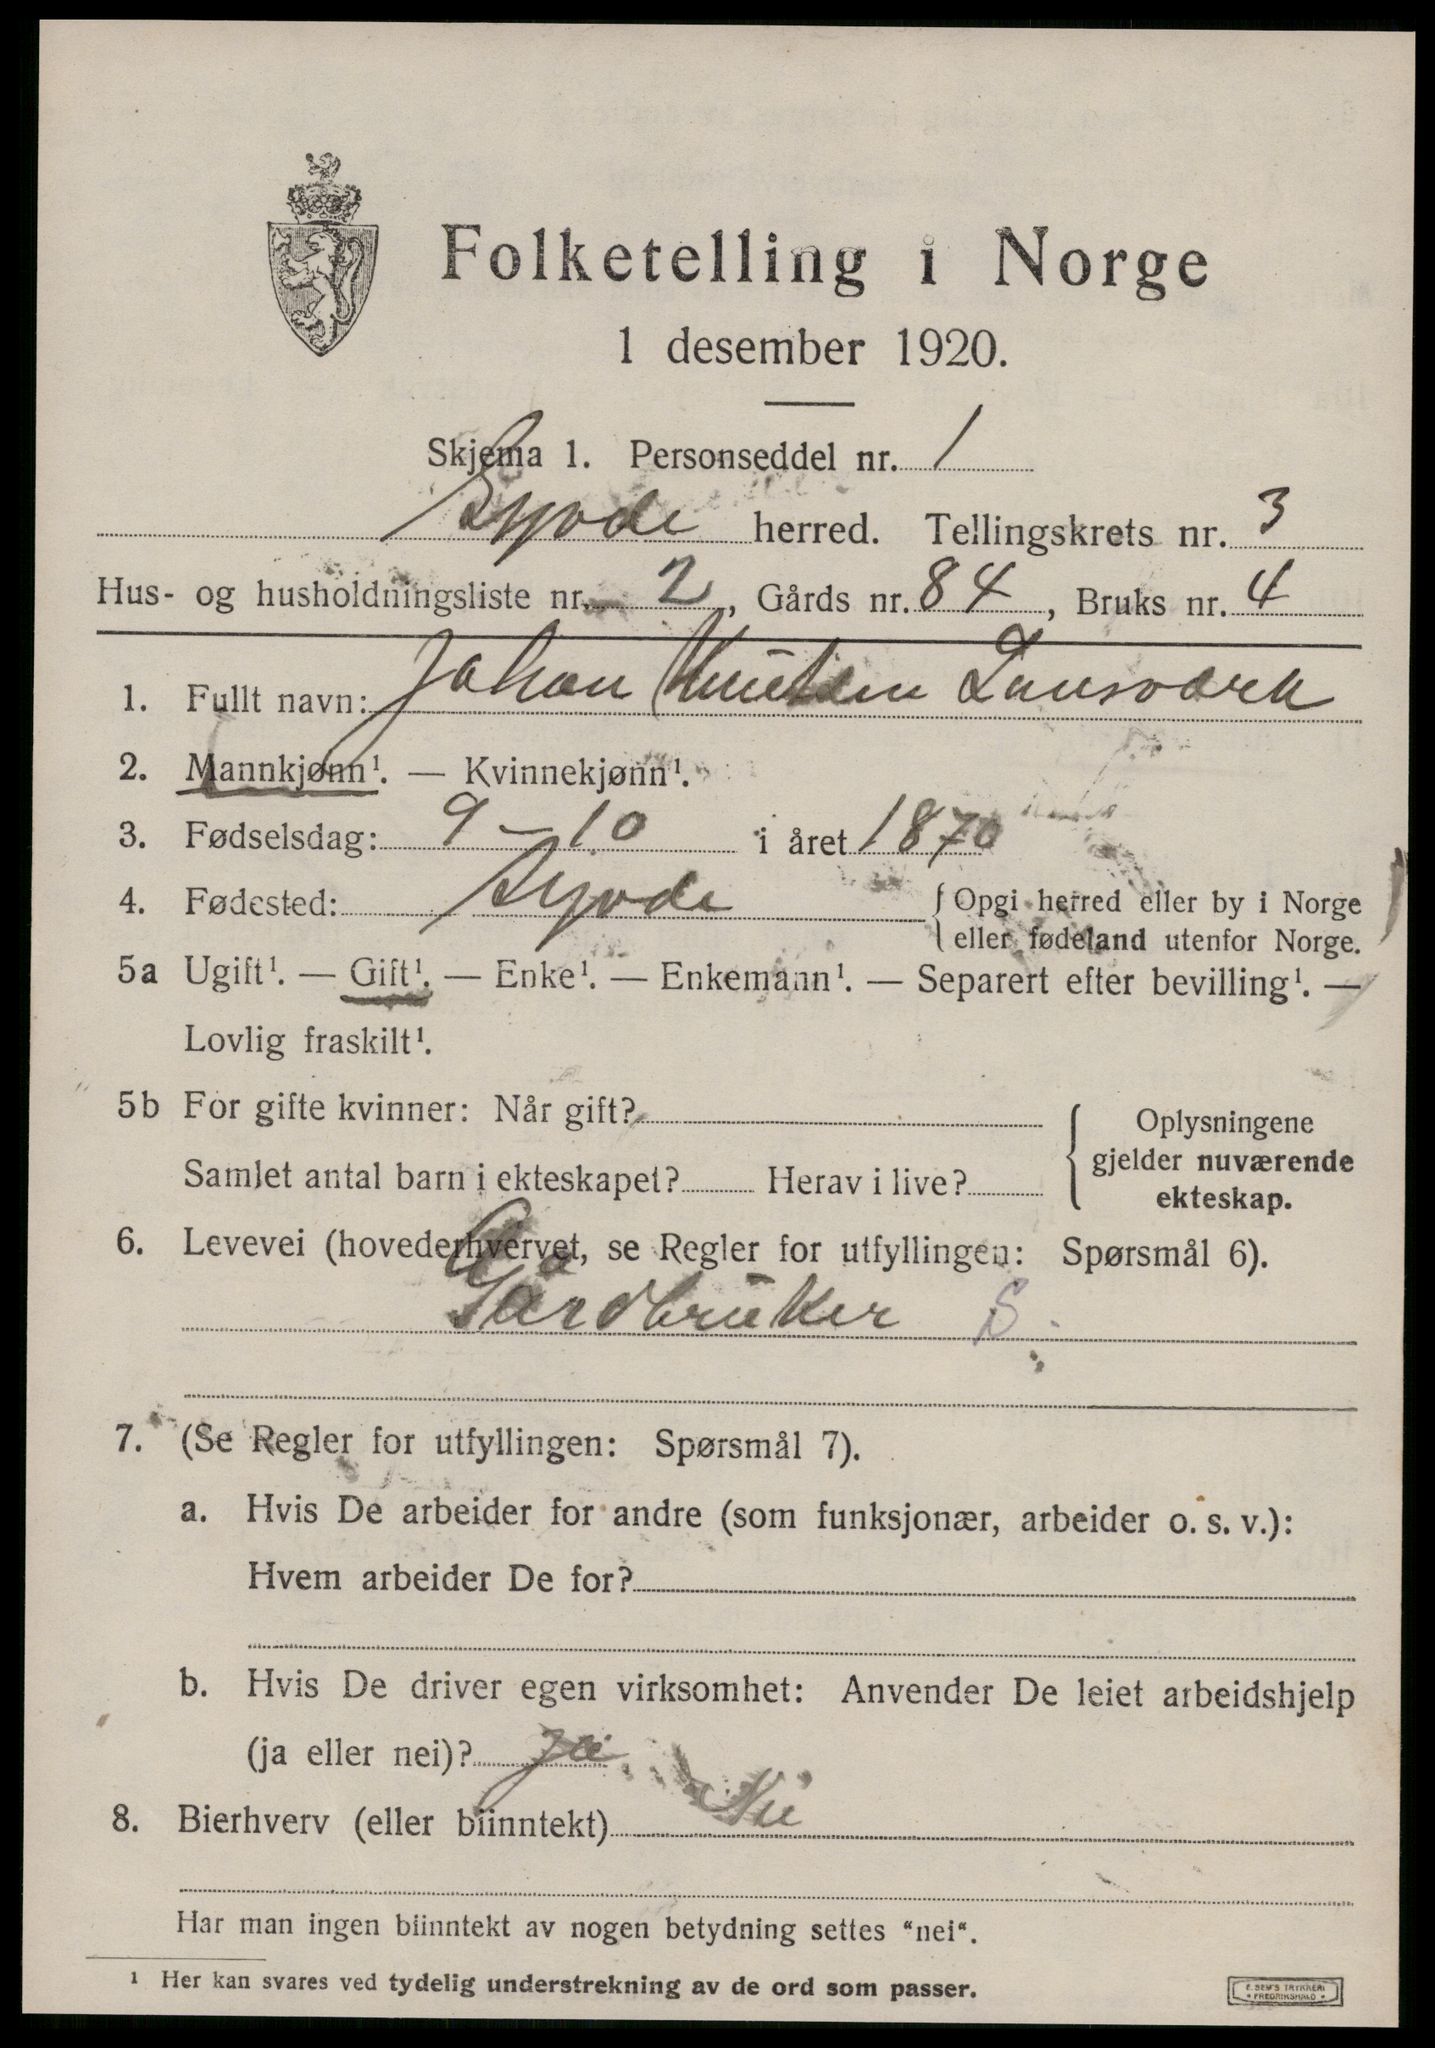 Folketelling i Norge
1 desember 1920.
Skjema 1. Personseddel nr. 1
Syvde herred. Tellingskrets nr. 3
Hus- og husholdningsliste nr. 2, Gårds nr. 84, Bruks nr. 4
1. Fullt navn: Johan Knutsen
2. Mannkjønn¹. — Kvinnekjønn¹.
3. Fødselsdag: 9 – 10 i året 1870
4. Fødested: Syvde { Opgi herred eller by i Norge
eller fødeland utenfor Norge.
5a Ugift¹. — Gift¹. — Enke¹. — Enkemann¹. — Separert efter bevilling¹. —
Lovlig fraskilt¹.
5b For gifte kvinner: Når gift?
Samlet antal barn i ekteskapet? Herav i live?
Oplysningene
gjelder nuværende
ekteskap.
6. Levevei (hovederhvervet, se Regler for utfyllingen: Spørsmål 6).
Gårdbruker S.
7. (Se Regler for utfyllingen: Spørsmål 7).
a. Hvis De arbeider for andre (som funksjonær, arbeider o. s. v.):
Hvem arbeider De for?
b. Hvis De driver egen virksomhet: Anvender De leiet arbeidshjelp
(ja eller nei)? ja
8. Bierhverv (eller biinntekt) Nei
Har man ingen biinntekt av nogen betydning settes "nei".
¹ Her kan svares ved tydelig understrekning av de ord som passer.
E. SEM'S TRYKKERI
FREDRIKSHALD